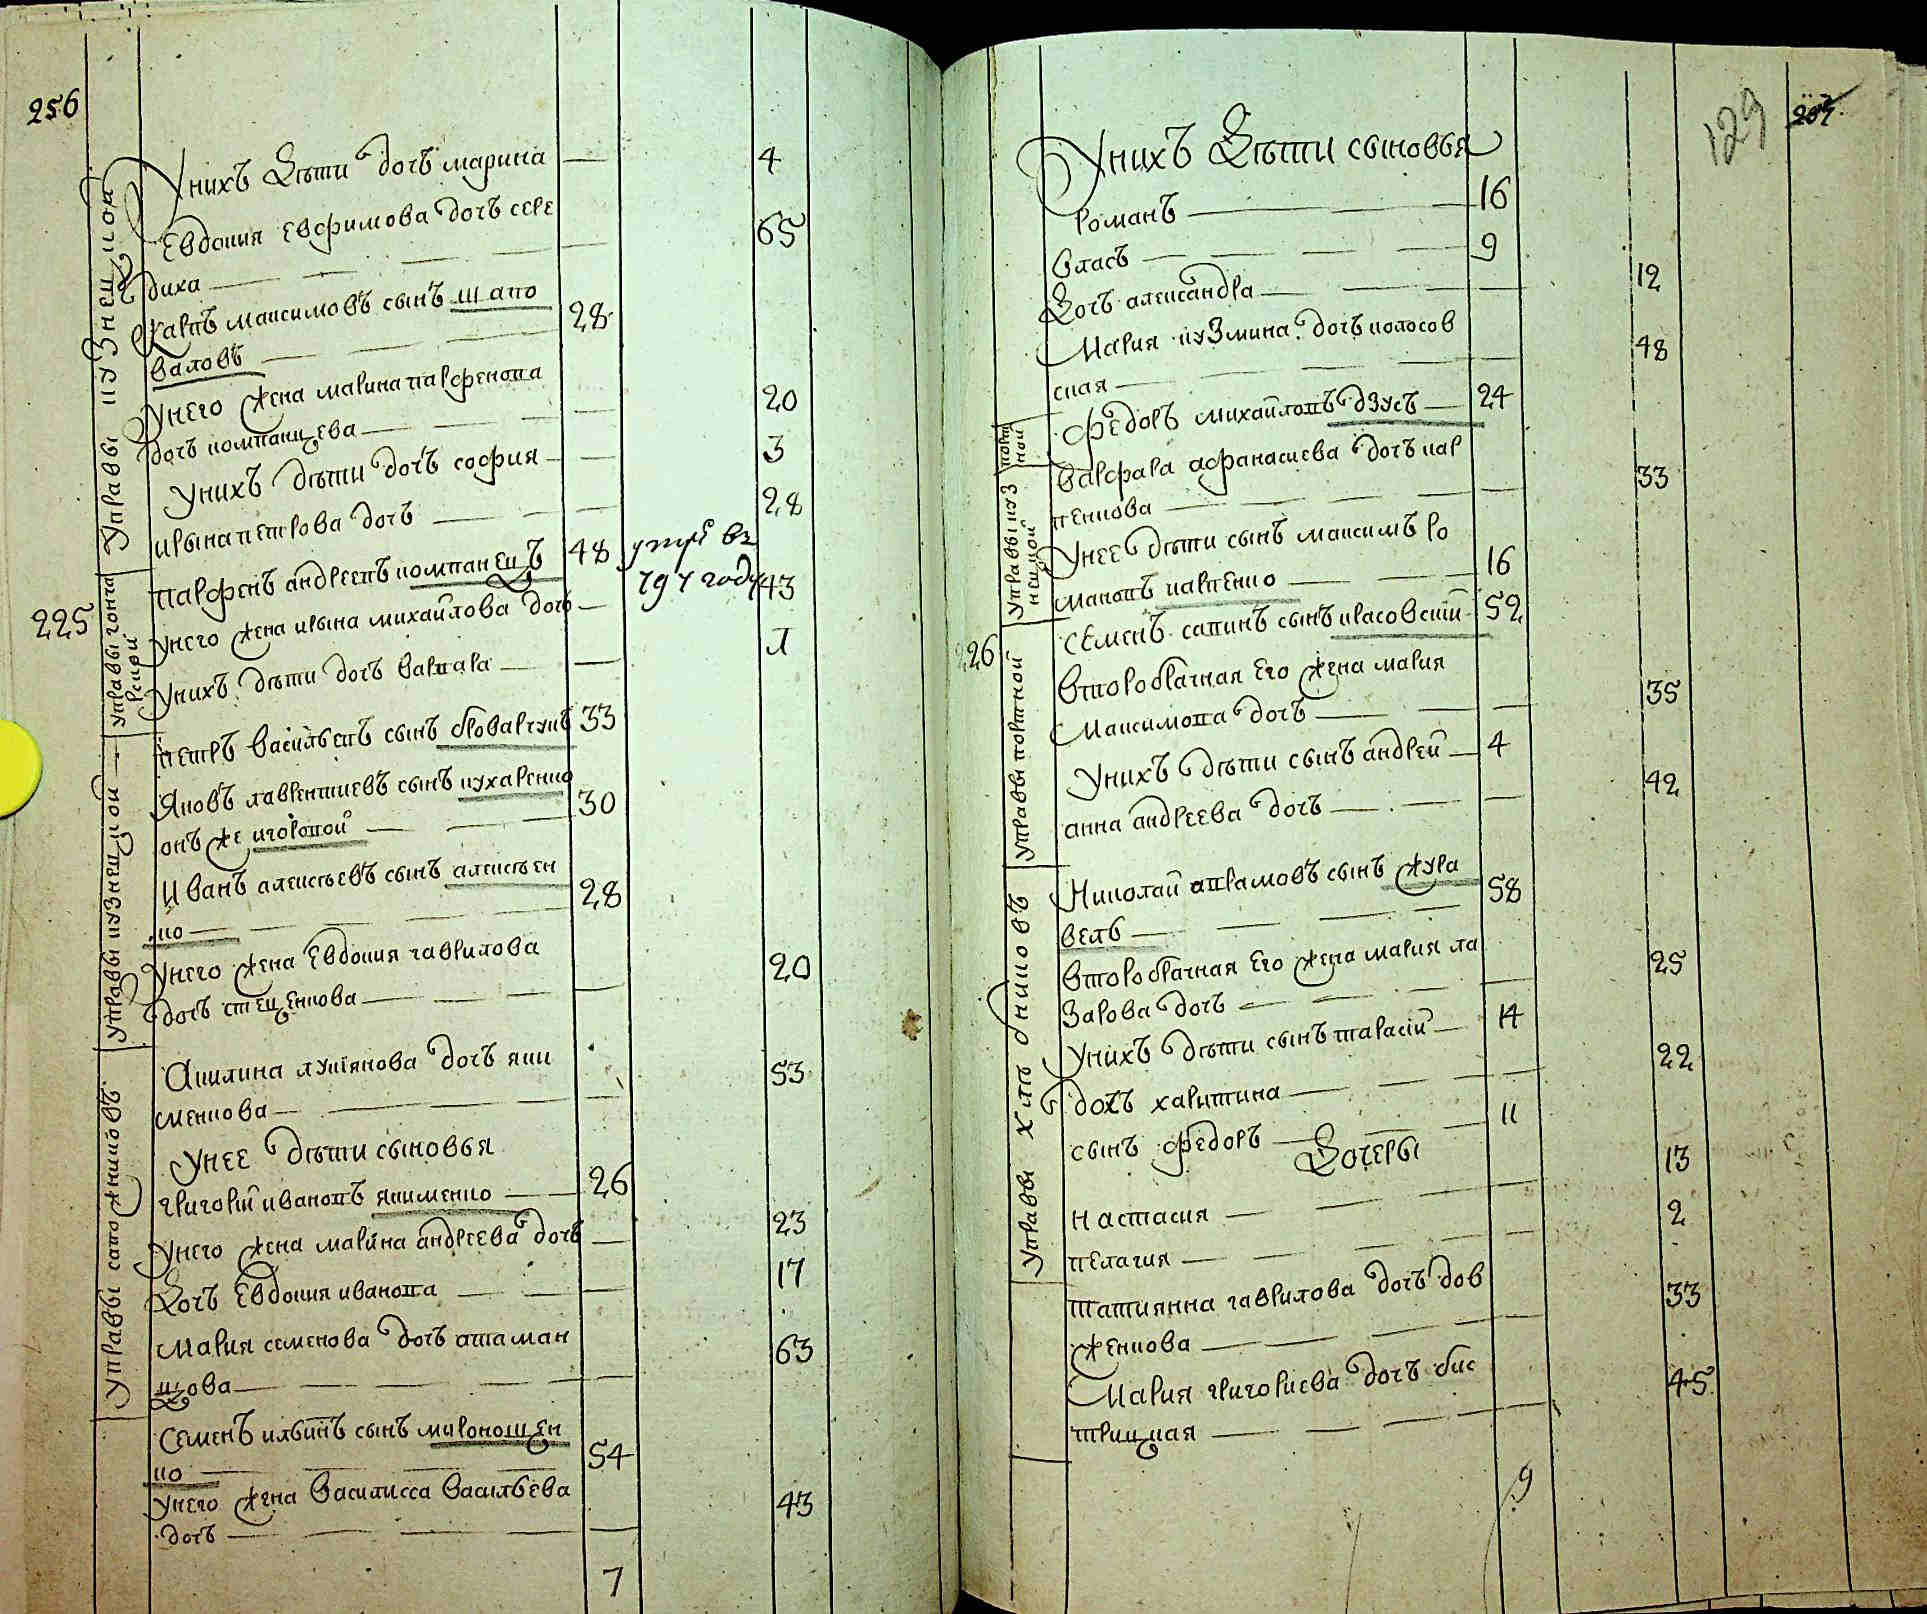 256
Унихъ Дѣти дочь марина — 4
Евдокия Евфимова дочь сере
диха — 65
Карпъ максимовъ сынъ шапо
валовъ — 28
Унего жена марина парфенова
дочь компанцева — 20
Унихъ дѣти дочь софия — 3
ирына петрова дочь — 28
парфенъ андреевъ компанецъ 48 умре въ
797 году
225
Унего жена ирына михайлова дочь — 43
Унихъ дѣти дочь варвара — Л
петръ васильевъ сынъ броварчукъ 33
Яковъ лаврентиевъ сынъ кухаренко
онъ же игоровой — 30
Иванъ алексѣевъ сынъ алексѣен
ко — 28
Унего жена Евдокия гаврилова
дочь стеценкова — 20
Акилина лукіянова дочь яки
менкова — 53
Унее дѣти сыновья
григорій ивановъ якименко — 26
Унего жена марина андреева дочь — 23
Дочь Евдокия иванова — 17
Мария семенова дочь атаман
цова — 63
Семенъ ильинъ сынъ мирошен
ко — 54
Унего жена василисса васильева
дочь — 43
7
Управы кузнецкой
Управы гонча
рской
Управы кузнецкой
Управы сапожниковъ
129
Унихъ Дѣти сыновья
Романъ — 16
власъ — 9
Дочь александра — 12
Мария кузмина дочь колосов
ская — 48
федоръ михайловъ дзусъ — 24
варфара афанасиева дочь кар
пенкова — 33
Унее дѣти сынъ максимъ Ро
мановъ карпенко — 16
226
семенъ савинъ сынъ красовскій 52
второбрачная его жена мария
Максимова дочь — 35
Унихъ дѣти сынъ андрей — 4
анна андреева дочь — 42
Николай аврамовъ сынъ жура
вель — 58
второбрачная его жена мария ла
зарова дочь — 25
Унихъ дѣти сынъ тарасій — 14
дочь харитина — 22
сынъ федоръ — 11
Дочеры
настасия — 13
пелагия — 2
татиянна гаврилова дочь дов
женкова — 33
Мария григориева дочь бис
трицкая — 45
9
портной
Управы куз
нецкой
Управы портной
Управы хлѣбниковъ